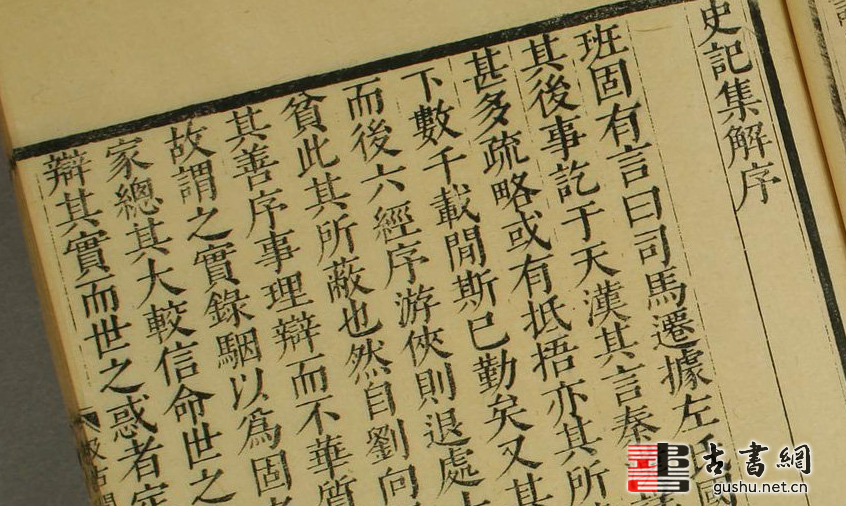 史記集解序
班固有言曰司馬遷據左氏國
其後事訖于天漢其言秦
甚多疏略或有抵捂亦其所
下數千載閒斯已勤矣又其
而後六經序游俠則退處
貧此其所蔽也然自劉向
其善序事理辯而不華質
故謂之實錄駰以爲固
家總其大較信命世之
辯其實而世之惑者定
汲古閣
古書網
gushu.net.cn